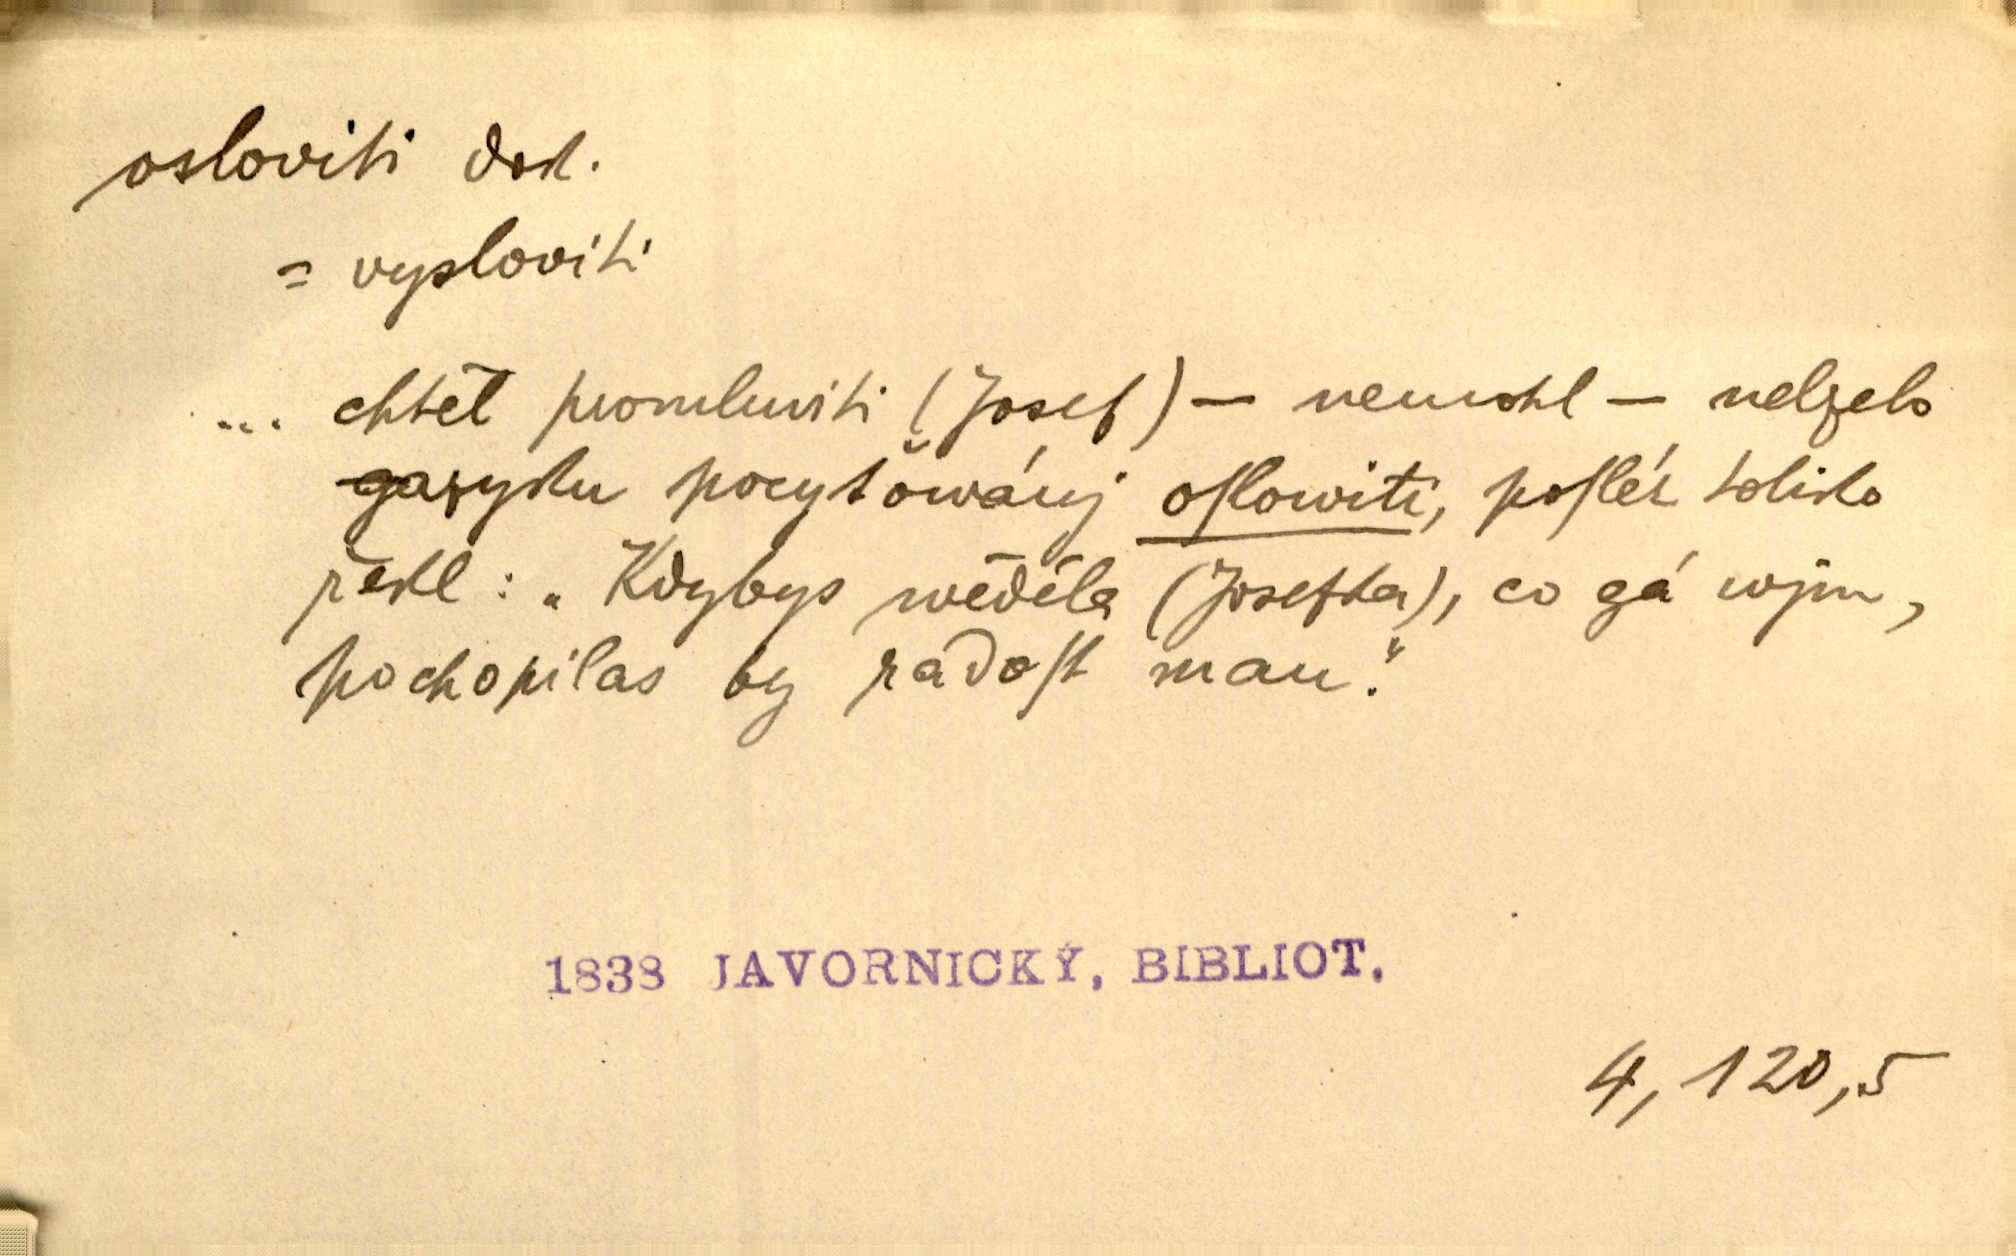 osloviti dok.
= vysloviti
... chtěl promluviti (Josef) — nemohl — nelzelo
gazyku pocytowánj oſlowiti, poſléz toliko
řekl : „Kdybys wěděla (Josefka), co gá wjm,
pochopilas by radoſt mau."
1838 JAVORNICKÝ, BIBLIOT.
4, 120,5